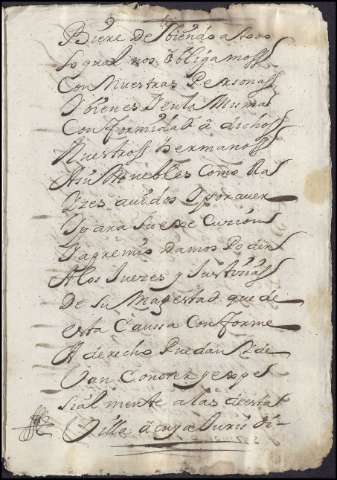 Biene de Sbiendo a todo
lo qual nos obligamoss
Con Nuestras Personass
Y bienes Y en la Misma
Conformidad â dichoss
Nuestross hermanoss
Asi Muebles Como Ra
Yzes auidos Y por auer
Y para su execuzion
Y apremio Damos Poder
A los Juezes y Justiziass
De su Magestad que de
esta Caussa Conforme
A derecho Puedan Y de
Van Conozer y espe
zialmente a las de esta
Villa â cuya Juris di-